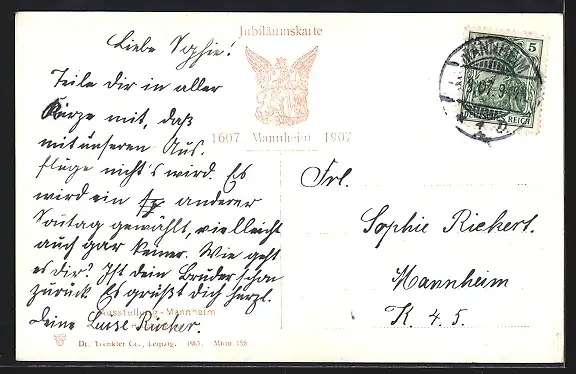 Jubiläumskarte
1607 Mannheim 1907
Liebe Sophie!
Teile dir in aller
Kürze mit, daß
mit unseren Aus-
flüge nicht's wird. Es
wird ein anderer
Sontag gewählt, vielleicht
auch gar keiner. Wie geht
es dir? Ist dein Bruder schon
zurück Es grüßt dich herzl.
deine Luise Rücher.
Ausstellung-Mannheim
Dr. Trenkler Co., Leipzig. 1907. Mnm. 158
MANNHEIM
5
REICH
Frl.
Sophie Rickert.
Mannheim
K. 4. 5.